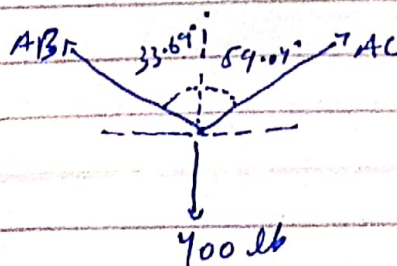 AB 33.69° 59.04° AC
400 lb